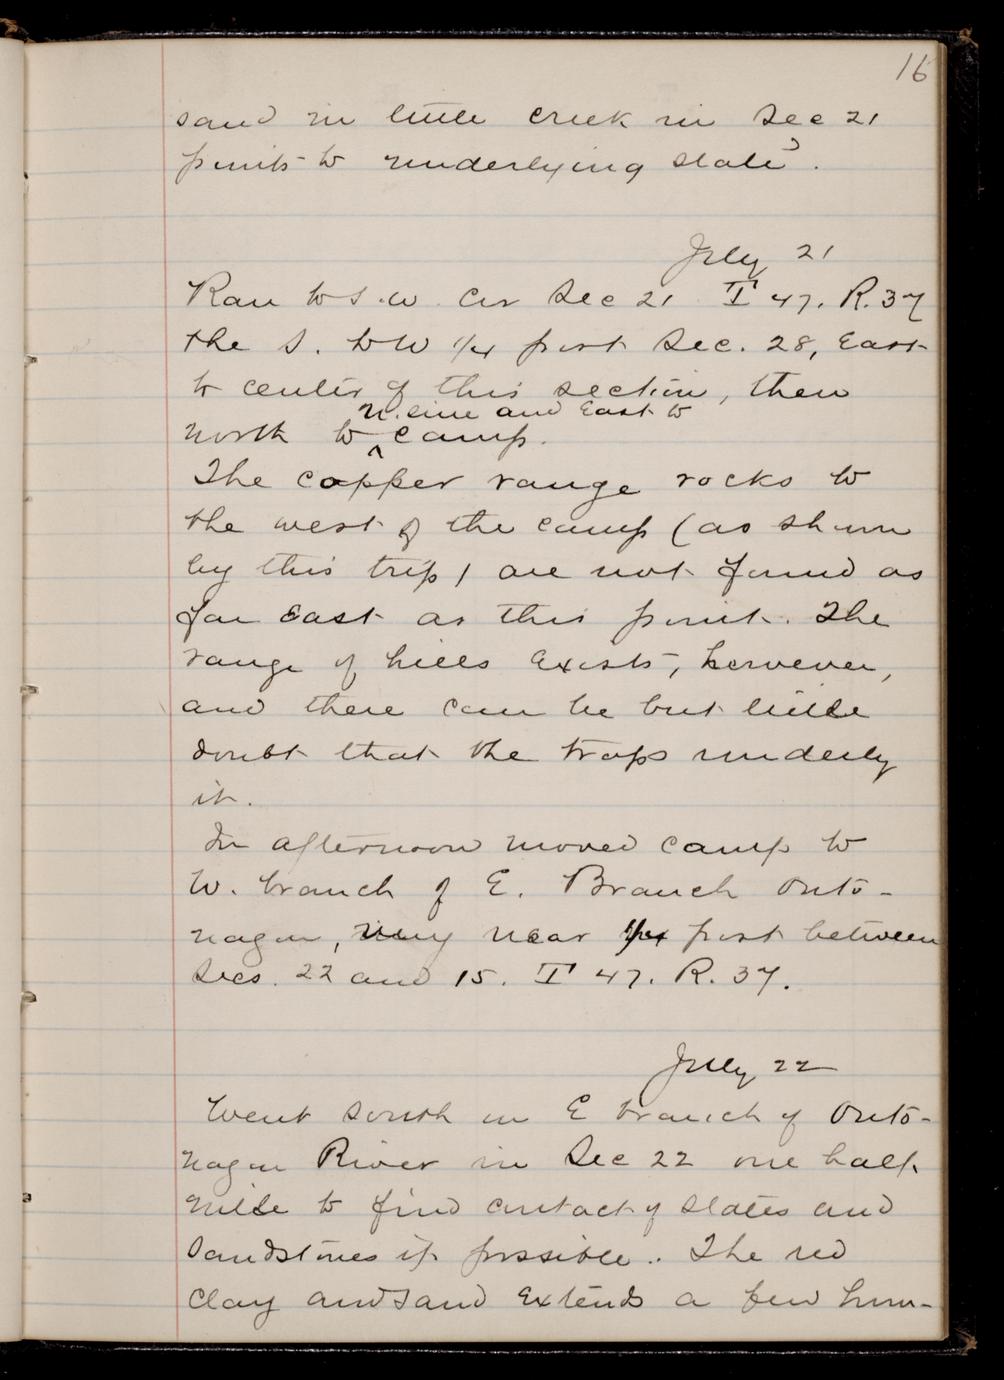 16
sand in little creek in Sec 21
points to underlying slate.
July 21
Ran to S.W. Cor Sec 21 T 47. R. 37
the S. to W 1/4 post Sec. 28, East
to center of this section, then
N. line and East to
north to ^ camp.
The copper range rocks to
the west of the camp (as shown
by this trip) are not found as
far East as this point. The
range of hills exists, however,
and there can be but little
doubt that the traps underly
it.
In afternoon moved camp to
W. branch of E. Branch Onto-
nagon, very near 1/4 post between
Secs. 22 and 15. T 47. R. 37.
July 22
Went south on E branch of Onto-
nagon River in Sec 22 one half
mile to find contact of slates and
sandstones if possible. The red
clay and sand extends a few hun-